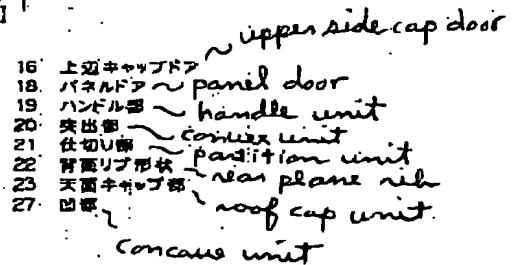 upper side cap door
16 上辺キャップドア
18. パネルドア panel door
19 ハンドル部 handle unit
20. 突出部 convex unit
21 仕切り部 partition unit
22 背面リブ形状 rear plane rib
23 天面キャップ部 roof cap unit.
27. 凹部
concave unit